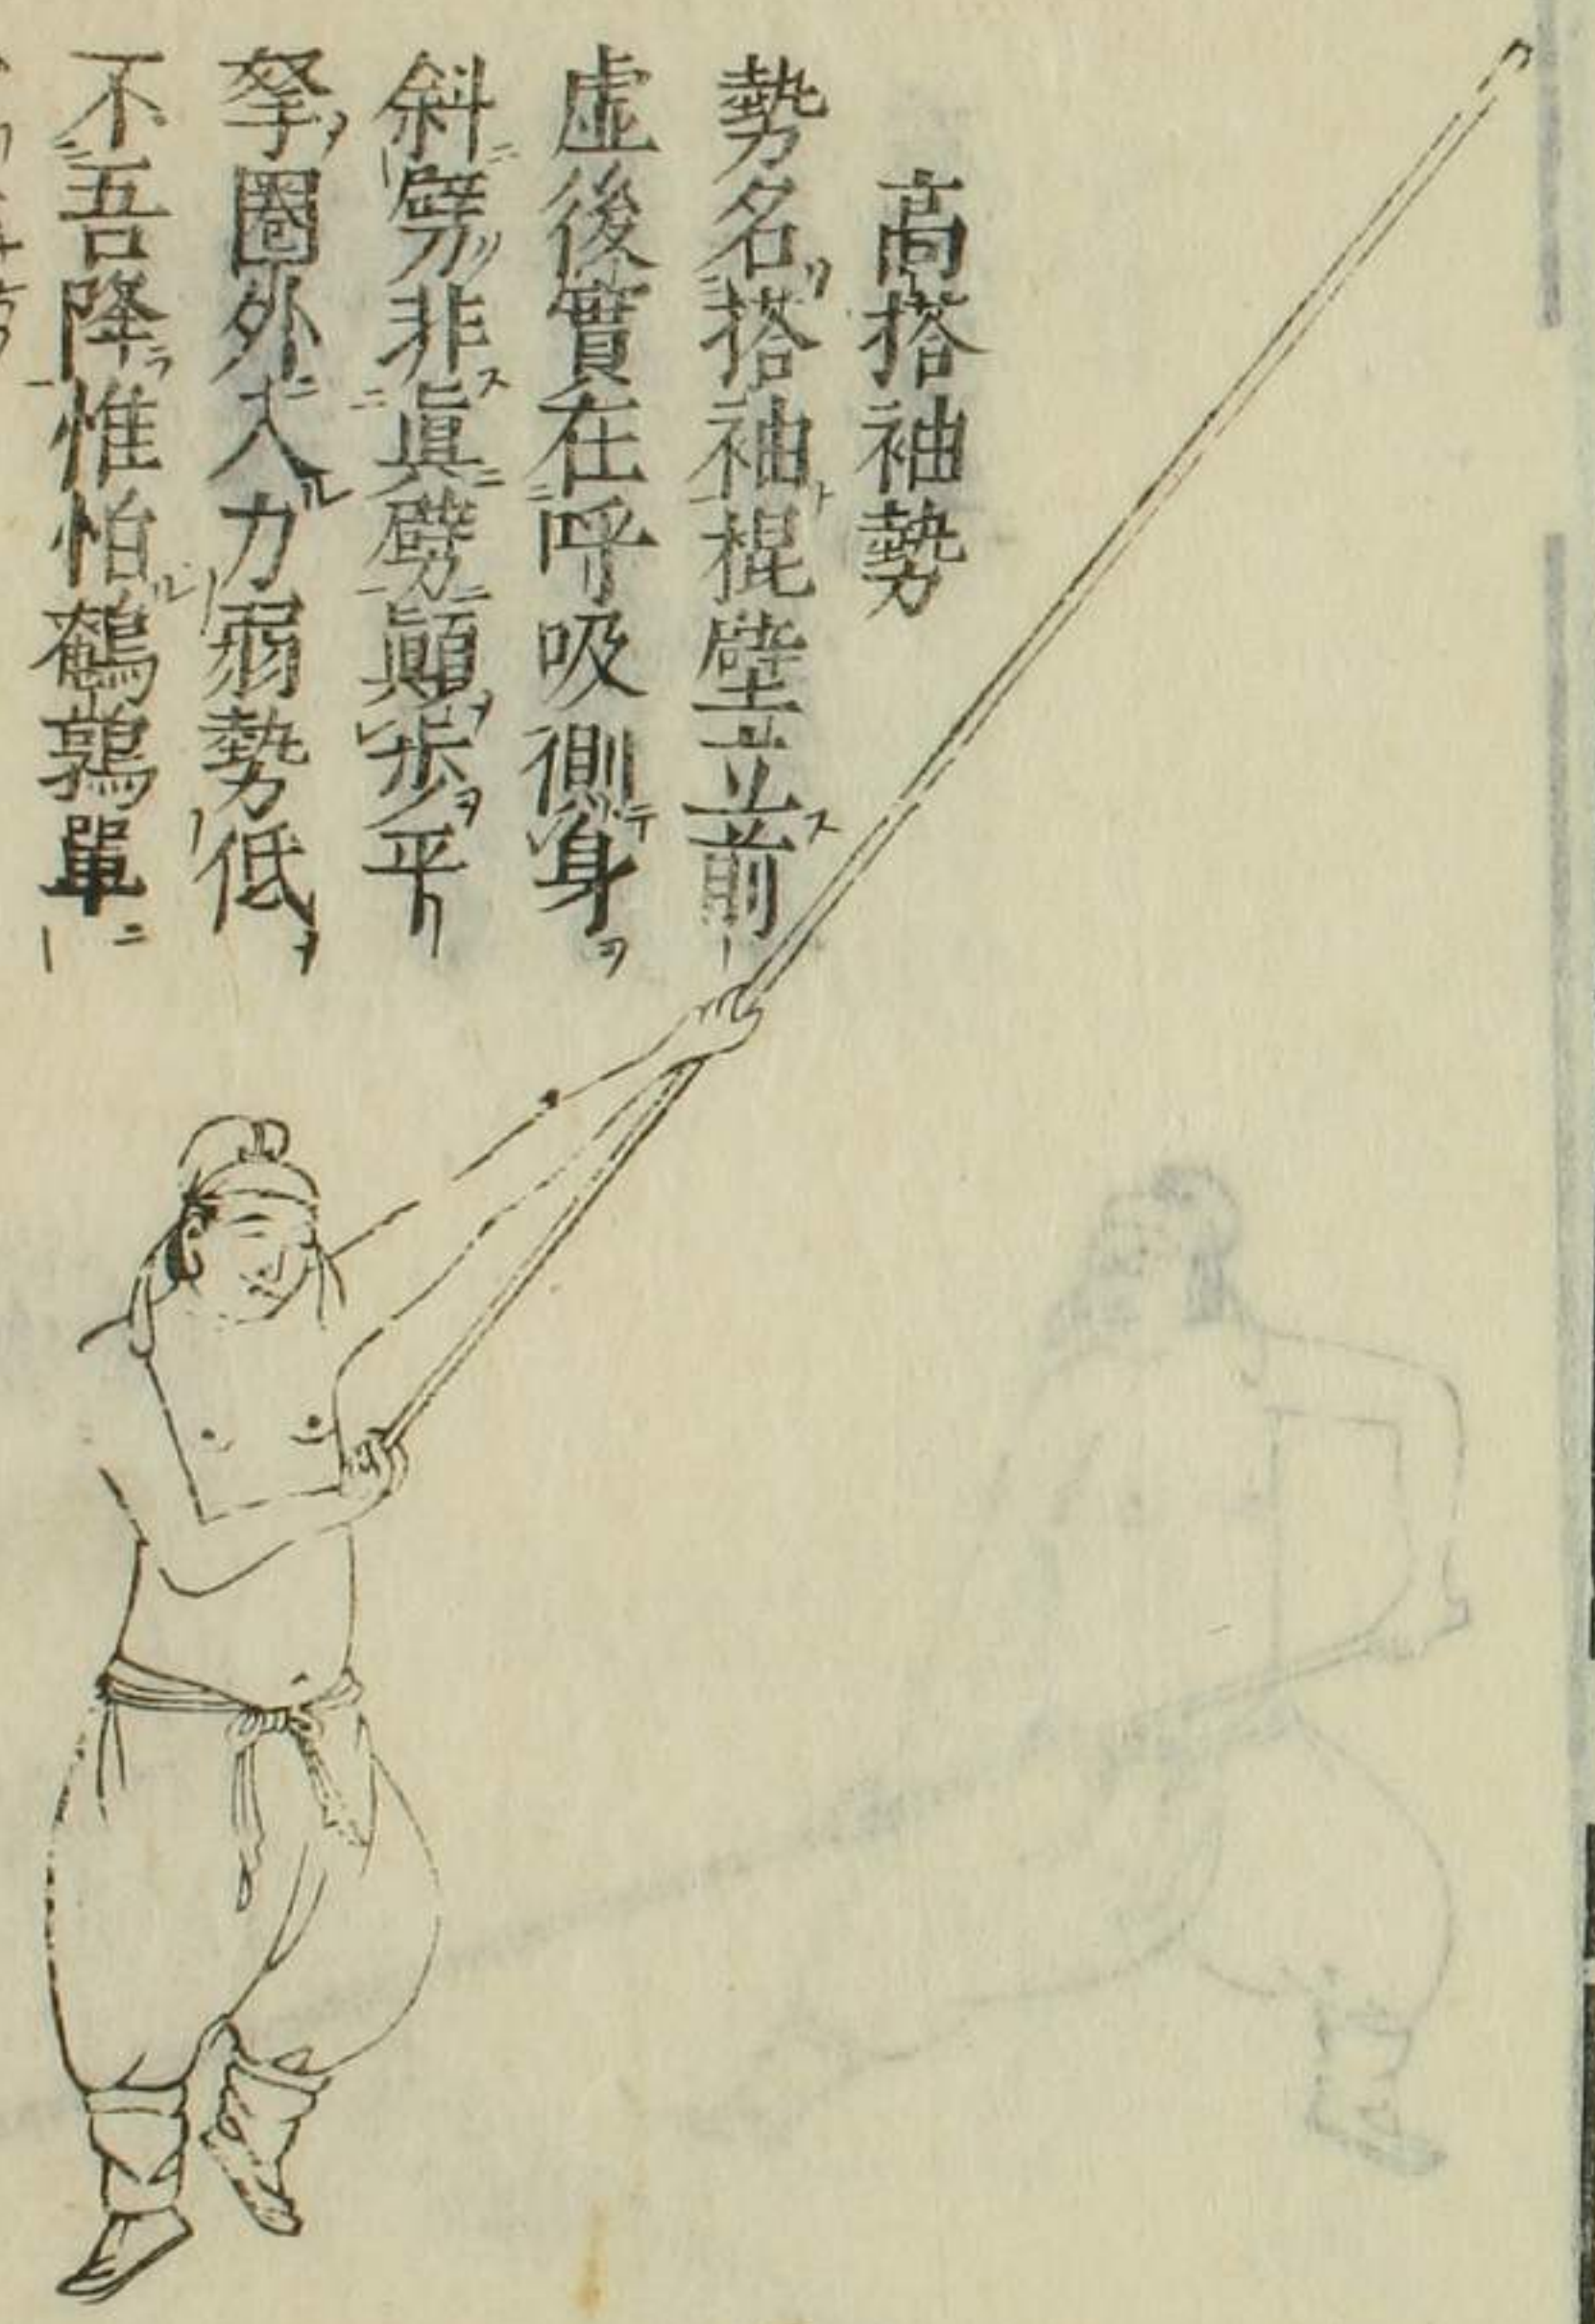 高搭袖勢
勢名搭袖棍壁立前
虛後實在呼吸側身
斜劈非眞劈顚歩平
拏圈外入力弱勢低
不吾降惟怕鵪鶉單